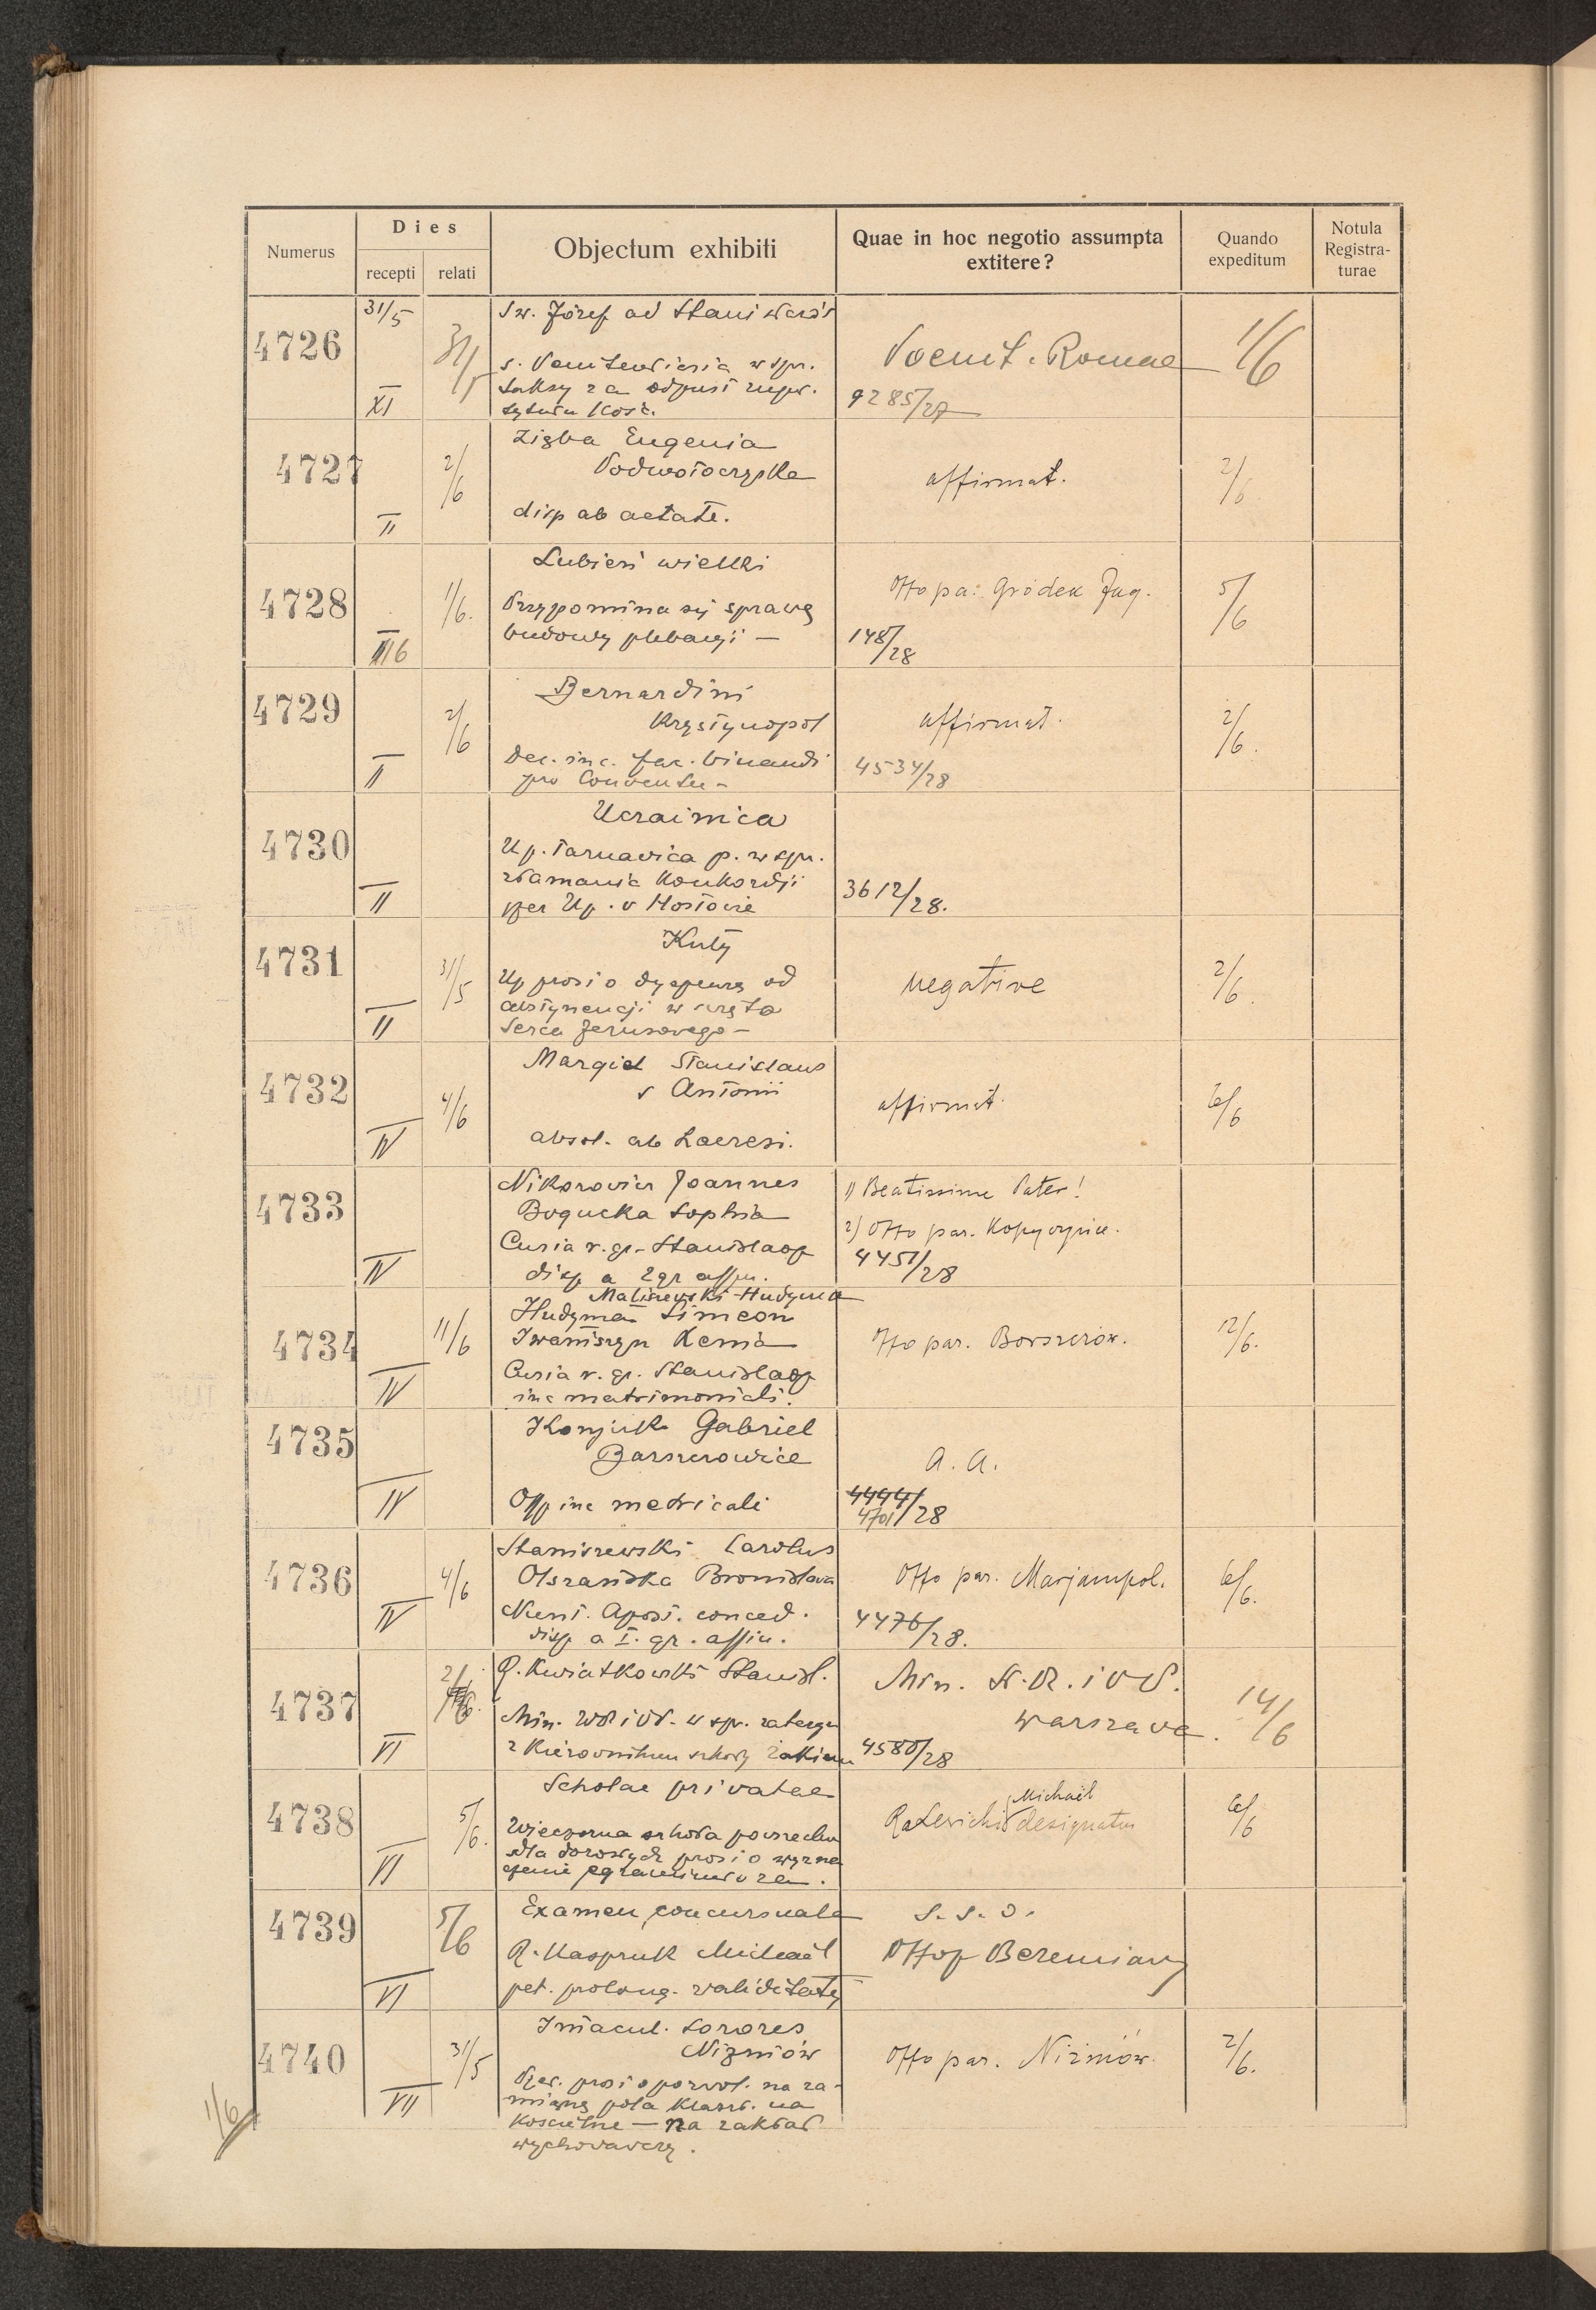 Numerus
Dies
recepti
relati
Objectum exhibiti
Quae in hoc negotio assumpta
extitere?
Quando
expeditum
Notula
Registra-
turae
4726
31/5
XI
31/5
Sw. Józef ad
w spr.
taksy za odpust zupeł.
tytułu Kość.
Poenit. Romae
9285/27
1/6
4727
II
2/6
Zięba Eugenia
Podwołoczyska
disp ab aetate.
affirmat.
2/6
4728
III 6
1/6.
Lubień wielki
Przypomina się sprawę
budowy plebanji —
Offo pa: Gródek Jag.
148/28
5/6
4729
II
2/6
Bernardini
Krystynopol
Dec. inc. fac. binandi
pro Conventu -
affirmat.
4534/28
2/6.
4730
II
Ucrainica
Up. Tarnavica p. w spr.
złamania Konkordji
per Up. v Hostowie
3612/28.
4731
II
31/5
Kuty
Up prosi o dyspensę od
abstynencji w święto
Serca Jezusowego -
negative
2/6.
4732
IV
4/6
Margiel Stanislaus
s Antonii
absol. ab haeresi.
affirmat.
6/6
4733
IV
Nikorovicz Joannes
Bogucka Sophia
Curia r. gr. Stanislaop
disp a 2gr affin.
1) Beatissime Pater!
2) Offo par. Kopyczyńce.
4451/28
4734
IV
11/6
Maliszewski-Hudyma
Hudyma Simeon
Iwaniszyn Xenia
Curia r. gr. Stanislaop
inc matrimoniali.
Offo par. Borszczów.
12/6.
4735
IV
Konjuk Gabriel
Barszczowice
Offp inc metricali
A. A.
4494/
4701/28
4736
IV
4/6
Staniszewski Carolus
Olszańska Bronislava
Nunt. Apost. conced.
disp a I. gr. affin.
Offo par. Marjampol.
4476/28.
6/6.
4737
VI
2/
R. Kwiatkowski Stanisl.
Min. WR i OP. w spr. zatargu
z Kierovnikiem szkoły
Min. W. R. i O P.
Warszava.
4580/28
14/6
4738
VI
5/6.
Scholae privatae
Wieczorna szkoła powszechn
dla dorosłych prosi o wyzna
czenie egzaminatora.
Michaël
designatus
6/6
4739
VI
5/6
Examen concursuale
R. Kaspruk Michaël
pet. prolong. validitatis
S. S. O.
Offop Beremiany
4740
VII
31/5
Imacul. Sorores
Niżniów
prosi o pozwol. na za-
mianę pola klaszt. na
Kościelne — na zakład
wychovavczy.
Offo par. Niżniów.
2/6.
1/6